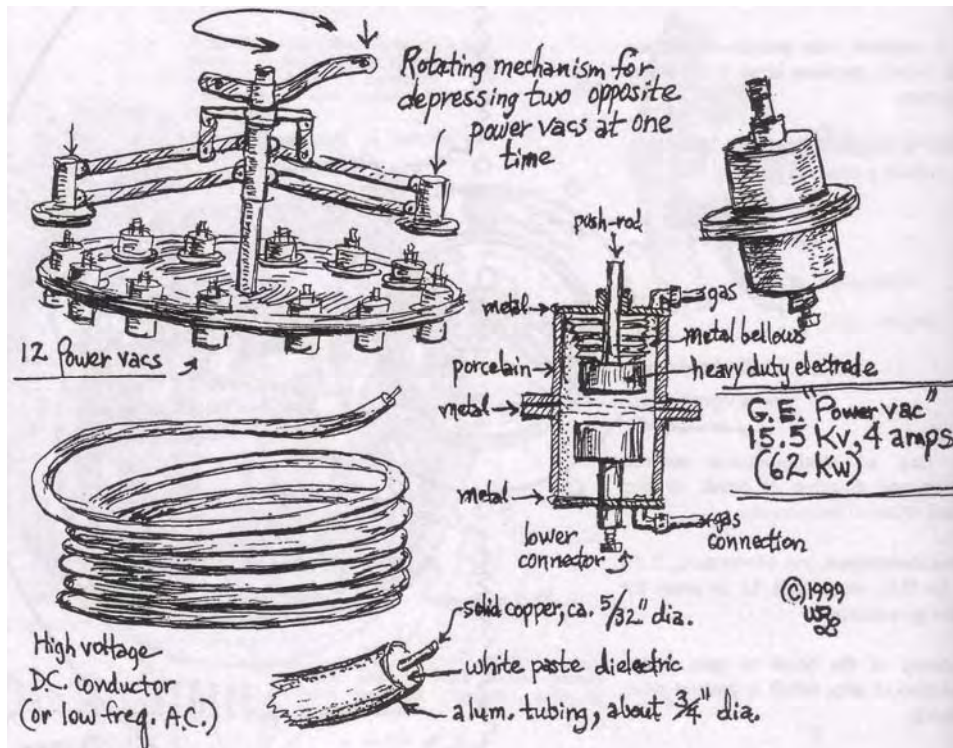 Rotating mechanism for
depressing two opposite
power vacs at one
time
12 Power vacs
push-rod
gas
metal
metal bellows
porcelain
heavy duty electrode
metal
G.E. "Power vac"
15.5 Kv, 4 amps
(62 Kw)
metal
lower
connector
gas
connection
©1999
High voltage
D.C. conductor
(or low freq. A.C.)
solid copper, ca. 5/32" dia.
white paste dielectric
alum. tubing, about 3/4" dia.